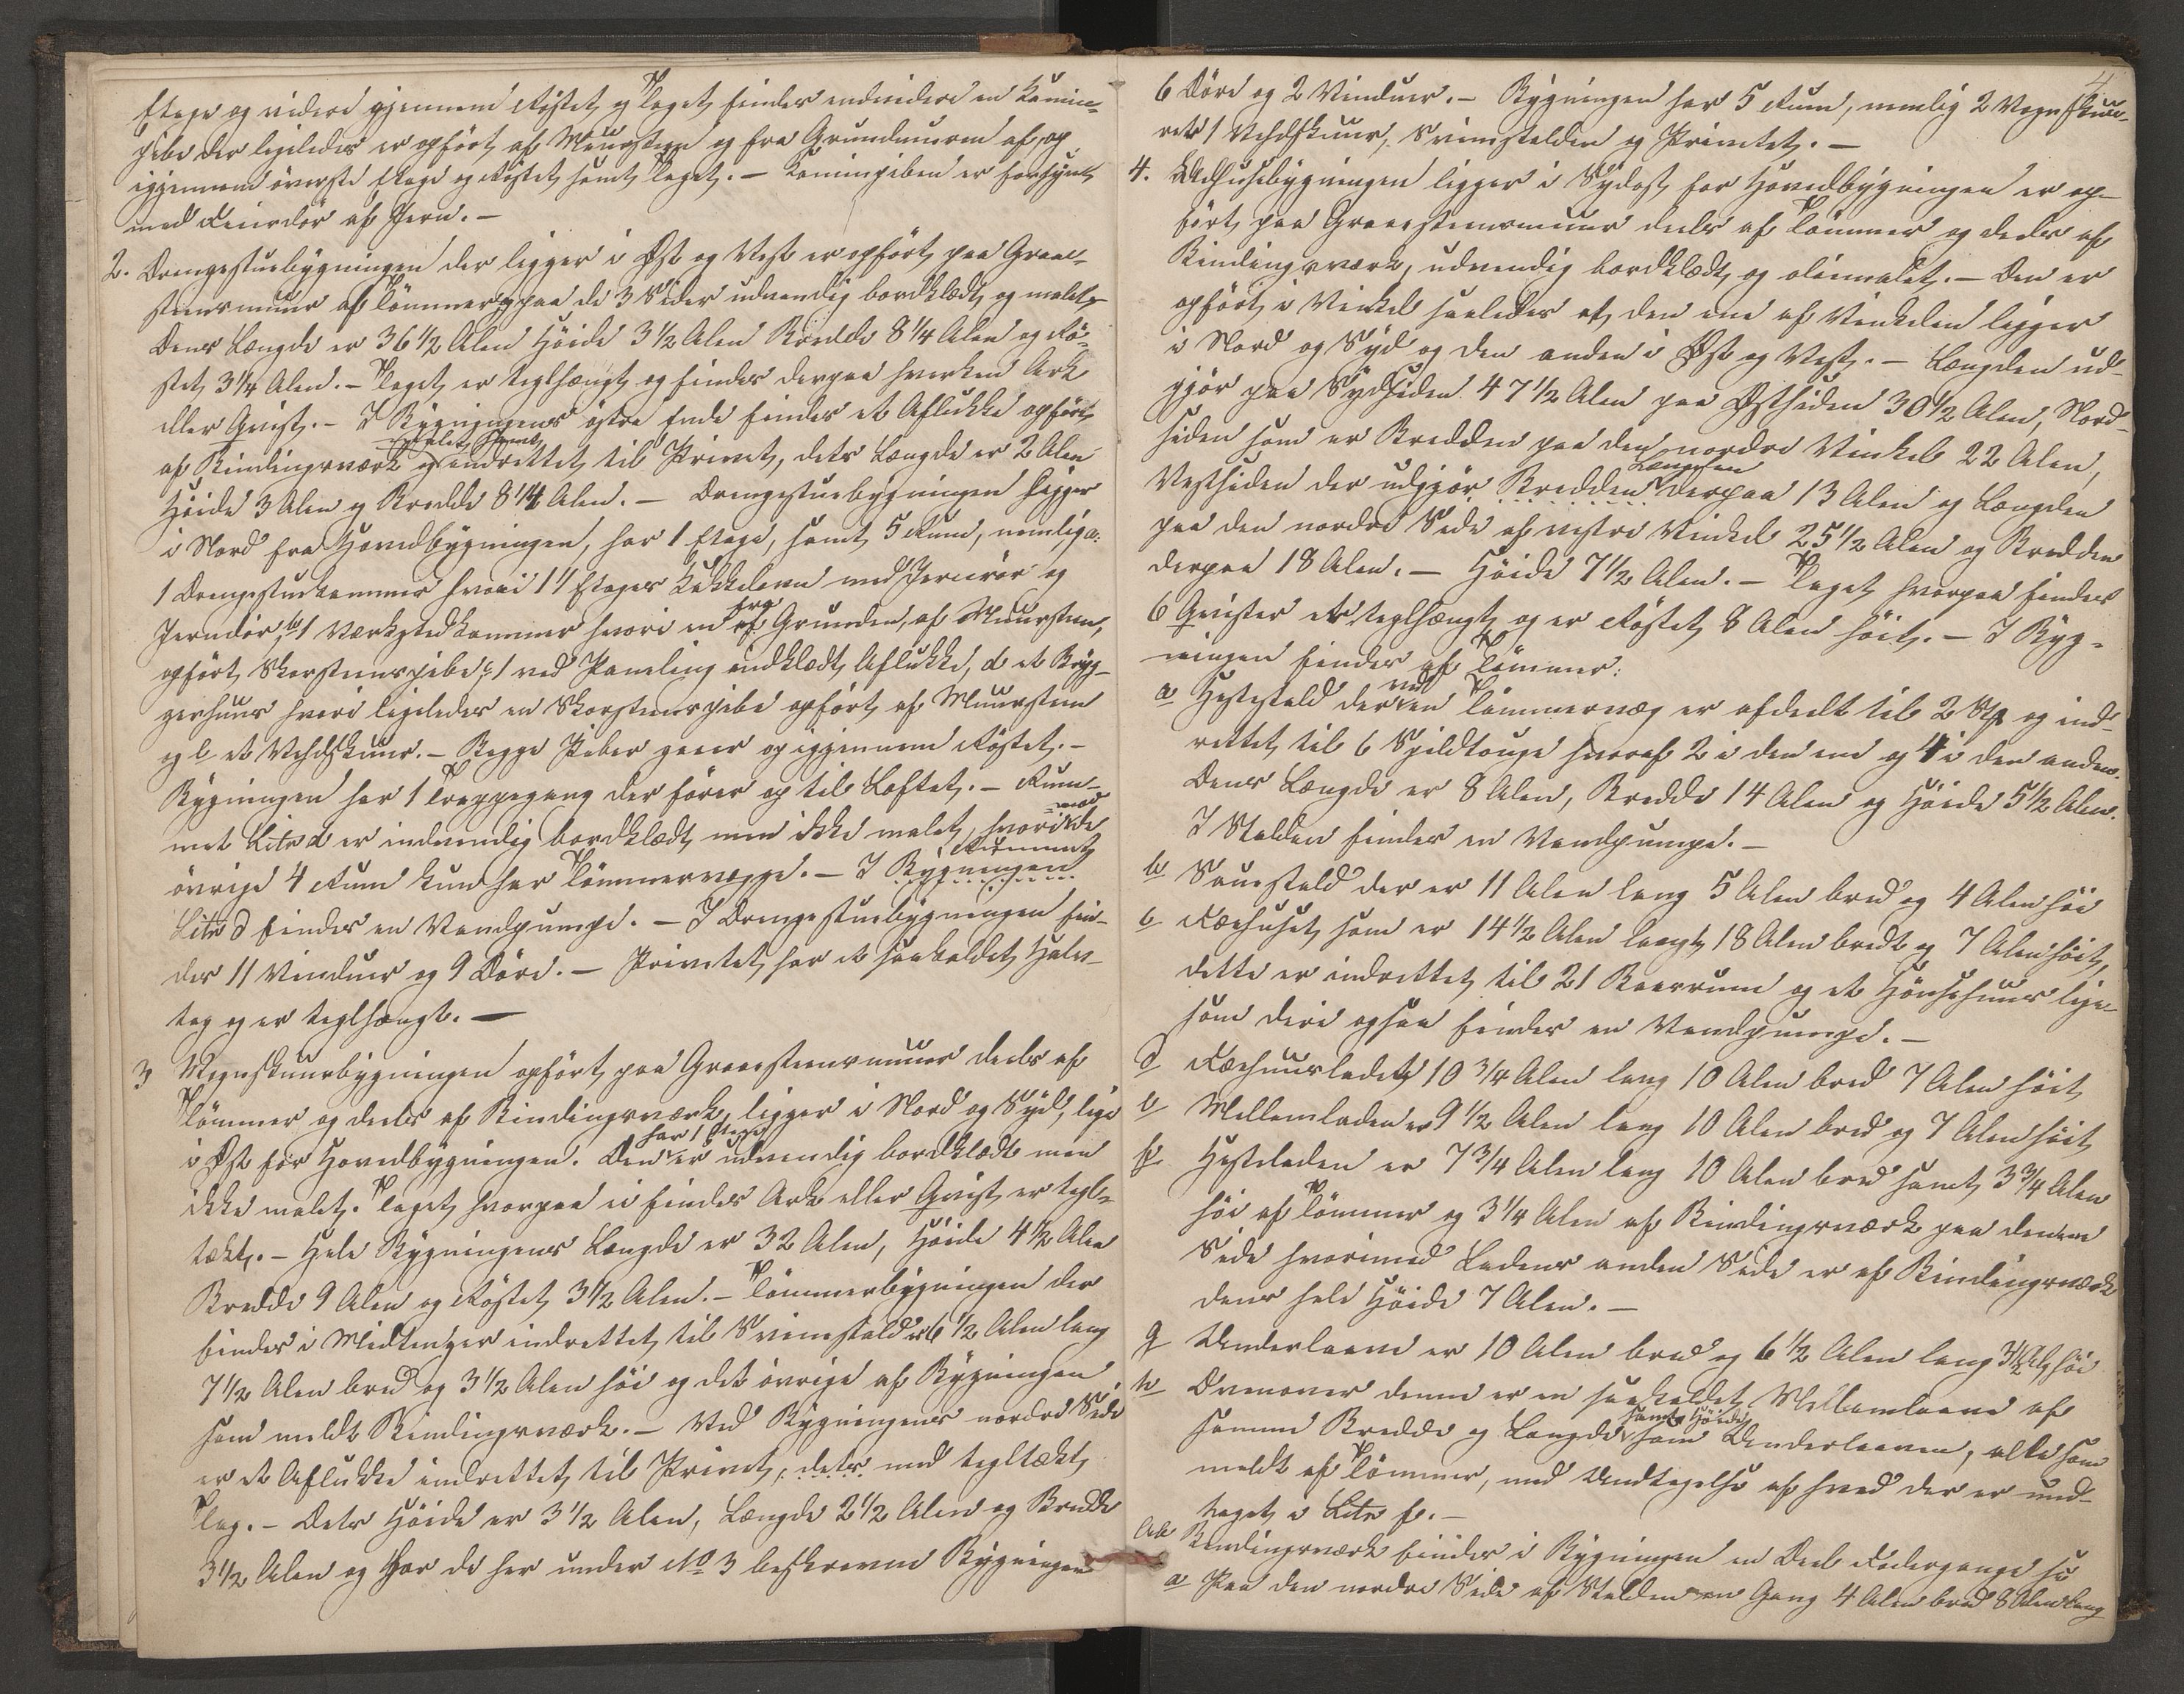 Etage og videre gjennem Røstet og Taget findes endvidere en Kamin-
pibe der ligeledes er opført af Muursteen og fra Grundmuren af, op
igjennem øverste Etage og Røstet samt Taget. – Kaminpiben er forsynet
med Feierdør af Jern. –
2. Drengestuebygningen der ligger i Øst og Vest er opført paa Graae-
steensmuur af Tømmer og paa de 3 Sider udvendig bordklædt og malet.
Dens Længde er 36 1/2 Alen Høide 3 1/2 Alen Bredde 8 1/4 Alen og Rø-
stet 3 1/4 Alen. – Taget er teglhængt og findes derpaa hverken Ark
eller Qvist. – I Bygningens østre Ende findes et Aflukke opført
af Bindingsværk og malet samt indrettet til Privet, dets Længde er 2 Alen
Høide 3 Alen og Bredde 8 1/4 Alen. – Drengestuebygningen ligger
i Nord fra Hovedbygningen, har 1 Etage, samt 5 Rum, nemlig a:
1 Drengestuekammer hvori 1 1 Etages Kakkelovn med Jernrør og
Jerndør, b 1 Værkstedkammer hvori en fra Grunden, af Muursteen,
opført Skorsteenspibe, c 1 ved Paneling indklædt Aflukke, d et Bryg-
gerhuus hvori ligeledes en Skorsteenspibe opført af Muursteen
og e et Vedskuur. – Begge Piber gaaer op igjennem Røstet. –
Bygningen har 1 Trappegang der fører op til Loftet. – Rum-
met Litr d er indvendig bordklædt men ikke malet, hvorimod de
øvrige 4 Rum kun har Tømmervægge. – I Bygningen Rummet
Litr d findes en Vandpumpe. – I Drengestuebygningen fin-
des 11 Vinduer og 9 Døre. – Privetet har et saakaldet Halv-
tag og er teglhængt. –
3 Vognskuurbygningen opført paa Graaesteensmuur deels af
Tømmer og deels af Bindingsværk, ligger i Nord og Syd, lige
i Øst for Hovedbygningen. Den har 1 Etage er udvendig bordklædt men
ikke malet. Taget hvorpaa ei findes Ark eller Qvist er tegl-
tækt. – Hele Bygningens Længde er 32 Alen, Høide 4 1/2 Alen
Bredde 9 Alen og Røstet 3 1/2 Alen. – Tømmerbygningen der
findes i Midten er indrettet til Sviinestald er 6 1/2 Alen lang
7 1/2 Alen bred og 3 1/2 Alen høi og det øvrige af Bygningen
som meldt Bindingsværk. – Ved Bygningens nordre Side
er et Aflukke indrettet til Privet, dets med tegltækt
Tag. – Dets Høide er 3 1/2 Alen, Længde 2 1/2 Alen og Bredde
3 1/2 Alen og har de her under No 3 beskrevne Bygninger
4
6 Døre og 2 Vinduer. – Bygningen har 5 Rum, nemlig 2 Vognskuu-
re 1 Vedskuur, Sviinestalden og Privetet. –
4. Udhuusbygningen ligger i Sydost for Hovedbygningen er op-
ført paa Graaesteensmuur deels af Tømmer og deels af
Bindingsværk, udvendig bordklædt og oliemalet. – Den er
opført i Vinkel saaledes at den ene af Vinklen ligger
i Nord og Syd og den anden i Øst og Vest. – Længden ud-
gjør paa Sydsiden 47 1/2 Alen paa Østsiden 30 1/2 Alen, Nord-
siden som er Bredden paa den nordre Vinkel 22 Alen,
Vestsiden der udgjør Bredden Længden derpaa 13 Alen og Længden
paa den nordre Side af vestre Vinkel 25 1/2 Alen og Bredden
derpaa 18 Alen. – Høide 7 1/2 Alen. – Taget hvorpaa findes
6 Qvister er teglhængt og er Røstet 8 Alen høit. – I Byg-
ningen findes af Tømmer:
a Hestestald der ved en Tømmervæg er afdeelt til 2 St. og ind-
rettet til 6 Spildtouge hvoraf 2 i den ene og 4 i den anden.
Dens Længde er 8 Alen, Bredde 14 Alen og Høide 5 1/2 Alen.
I Stalden findes en Vandpumpe. –
b Sauestald der er 11 Alen lang 5 Alen bred og 4 Alen høi
c Fæehuset som er 14 1/2 Alen langt 18 Alen bredt og 7 Alen høit,
dette er indrettet til 21 Baasrum og et Hønsehuus lige-
som deri ogsaa findes en Vandpumpe. –
d Fæehuusladet 10 3/4 Alen lang 10 Alen bred 7 Alen høit
e Mellemladen er 9 1/2 Alen lang 10 Alen bred og 7 Alen høit
f Hesteladen er 7 3/4 Alen lang 10 Alen bred samt 3 3/4 Alen
høi af Tømmer og 3 1/4 Alen af Bindingsværk paa den ene
Side hvorimod Ladens anden Side er af Bindingsværk
dens hele Høide 7 Alen. –
g Underlaaven er 10 Alen bred og 6 1/2 Alen lang 3 1/2 Al. høi
h Ovenover denne er en saakaldet Mellemlaave af
samme Bredde og Længde samt Høide som Underlaaven, alt som
meldt af Tømmer, med Undtagelse af hvad der er und-
taget i Litr f. –
Af Bindingsværk findes i Bygningen en Deel Fodergange so
a Paa den nordre Side af Stalden en Gang 4 Alen bred 8 Alen lang